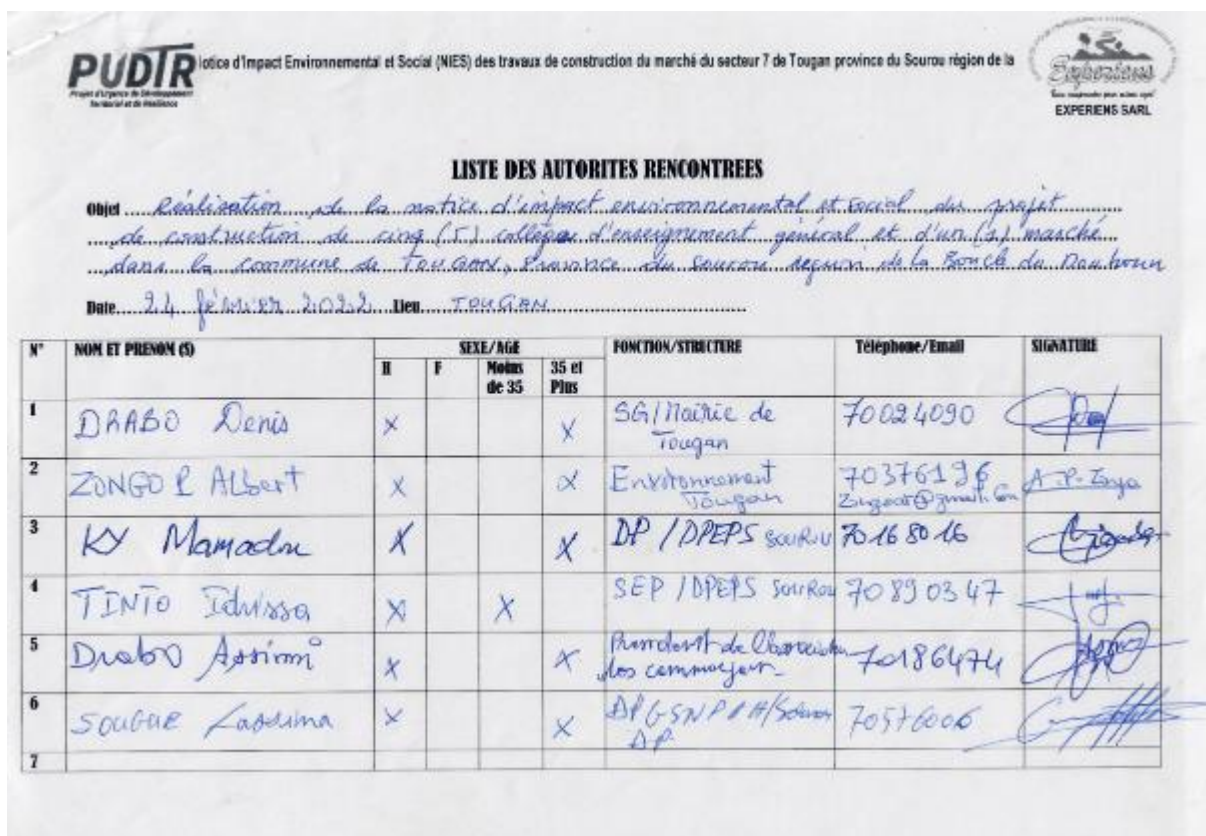 PUDTR
Projet d'Urgence de Développement
Territorial et de Résilience
otice d'Impact Environnemental et Social (NIES) des travaux de construction du marché du secteur 7 de Tougan province du Sourou région de la
Experiens
EXPERIENS SARL
LISTE DES AUTORITES RENCONTREES
Objet Réalisation de la notice d'impact environnemental et social du projet
de construction de cinq (5) collèges d'enseignement général et d'un (1) marché
dans la commune de TOUGAN, Province du sourou region de la Boucle du Mouhoun
Date 24 février 2022 Lieu TOUGAN
N° NOM ET PRENOM (S) SEXE/AGE FONCTION/STRUCTURE Téléphone/Email SIGNATURE
H F Moins de 35 35 et Plus
1 DRABO Denis X X SG/Mairie de Tougan 70024090
2 ZONGO P Albert X X Environnement Tougan 70376196 A.P. Zongo
3 KY Mamadou X X DP / DPEPS SOUROU 70 16 80 16
4 TINTO Idrissa X X SEP / DPEPS SOUROU 70 89 03 47
5 Drabo Assimi X X President de l'association des commerçants 70186474
6 SOUGUE Lassina X X 70576006
7